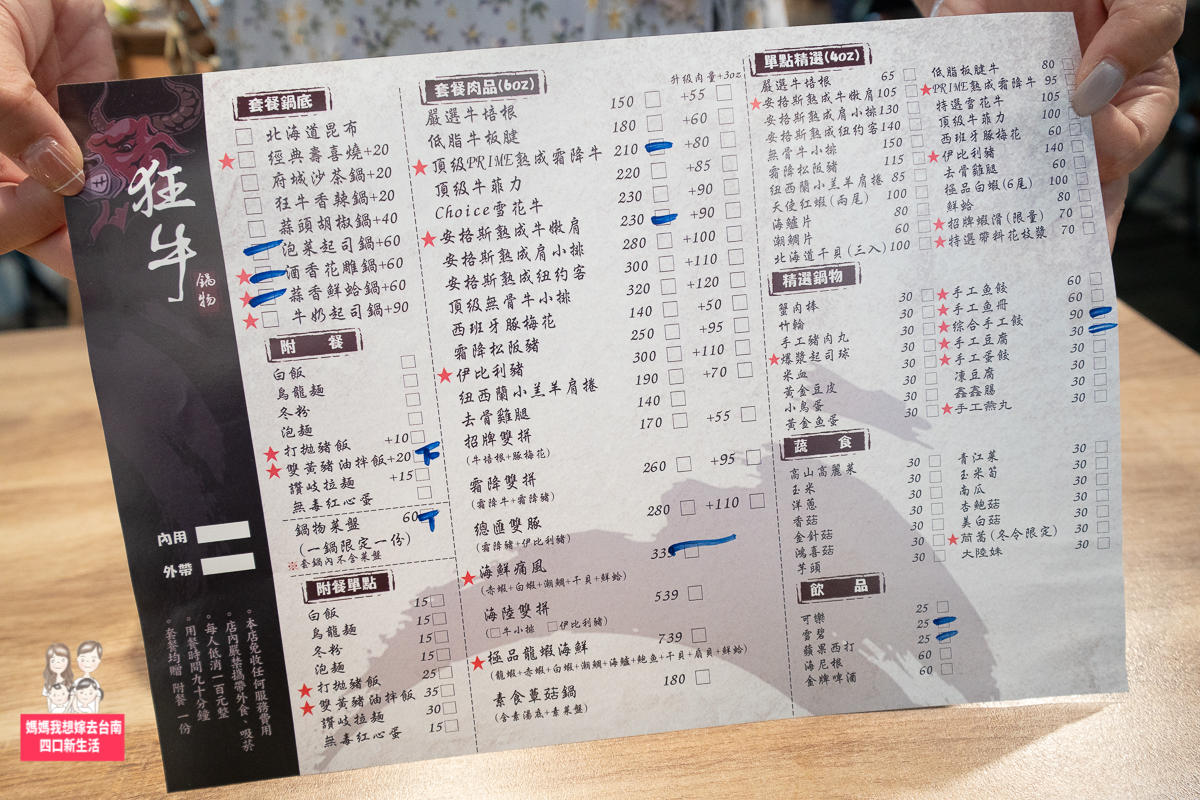 狂牛
鍋物
內用
外帶
。本店免收任何服務費用
。店內嚴禁攜帶外食、吸菸
。每人低消一百元整
。用餐時間九十分鐘
。套餐均贈 附餐 一份
套餐鍋底
北海道昆布
★ 經典壽喜燒+20
府城沙茶鍋+20
狂牛香辣鍋+20
蒜頭胡椒鍋+40
泡菜起司鍋+60
★ 酒香花雕鍋+60
★ 蒜香鮮蛤鍋+60
★ 牛奶起司鍋+90
附 餐
白飯
烏龍麵
冬粉
泡麵
★ 打拋豬飯 +10
★ 雙黃豬油拌飯+20 下
讚岐拉麵 +15
無毒紅心蛋
鍋物菜盤 60 下
(一鍋限定一份)
※套鍋內不含菜盤
附餐單點
白飯 15
烏龍麵 15
冬粉 15
泡麵 15
★ 打拋豬飯 25
★ 雙黃豬油拌飯 35
讚岐拉麵 30
無毒紅心蛋 15
套餐肉品(6oz)
升級肉量+3oz
嚴選牛培根 150 +55
低脂牛板腱 180 +60
★ 頂級PRIME熟成霜降牛 210 +80
頂級牛菲力 220 +85
Choice雪花牛 230 +90
★ 安格斯熟成牛嫩肩 230 +90
安格斯熟成肩小排 280 +100
安格斯熟成紐約客 300 +110
頂級無骨牛小排 320 +120
西班牙豚梅花 140 +50
霜降松阪豬 250 +95
★ 伊比利豬 300 +110
紐西蘭小羔羊肩捲 190 +70
去骨雞腿 140
招牌雙拼 170 +55
(牛培根+豚梅花)
霜降雙拼 260 +95
(霜降牛+霜降豬)
總匯雙豚 280 +110
(霜降豬+伊比利豬)
★ 海鮮痛風 335
(赤蝦+白蝦+潮鯛+干貝+鮮蛤)
海陸雙拼 539
(□牛小排 □伊比利豬)
★ 極品龍蝦海鮮 739
(龍蝦+赤蝦+白蝦+潮鯛+海鱸+鮑魚+干貝+扇貝+鮮蛤)
素食蕈菇鍋 180
(含素湯底+素菜盤)
單點精選(4oz)
嚴選牛培根 65
★ 安格斯熟成牛嫩肩 105
安格斯熟成肩小排 130
安格斯熟成紐約客 140
無骨牛小排 150
霜降松阪豬 115
紐西蘭小羔羊肩捲 85
天使紅蝦(兩尾) 100
海鱸片 80
潮鯛片 60
北海道干貝(三入) 100
低脂板腱牛 80
★ PRIME熟成霜降牛 95
特選雪花牛 105
頂級牛菲力 100
西班牙豚梅花 60
★ 伊比利豬 140
去骨雞腿 60
極品白蝦(6尾) 100
鮮蛤 80
★ 招牌蝦滑(限量) 70
★ 特選帶料花枝漿 70
精選鍋物
蟹肉棒 30
竹輪 30
手工豬肉丸 30
★ 爆漿起司球 30
米血 30
黃金豆皮 30
小鳥蛋 30
黃金魚蛋 30
★ 手工魚餃 60
★ 手工魚冊 60
★ 綜合手工餃 90
★ 手工豆腐 30
★ 手工蛋餃 30
凍豆腐 30
鑫鑫腸 30
★ 手工燕丸 30
蔬 食
高山高麗菜 30
玉米 30
洋蔥 30
香菇 30
金針菇 30
鴻喜菇 30
芋頭 30
青江菜 30
玉米筍 30
南瓜 30
杏鮑菇 30
美白菇 30
★ 茼蒿(冬令限定) 30
大陸妹 30
飲 品
可樂 25
雪碧 25
蘋果西打 25
海尼根 60
金牌啤酒 60
媽媽我想嫁去台南
四口新生活